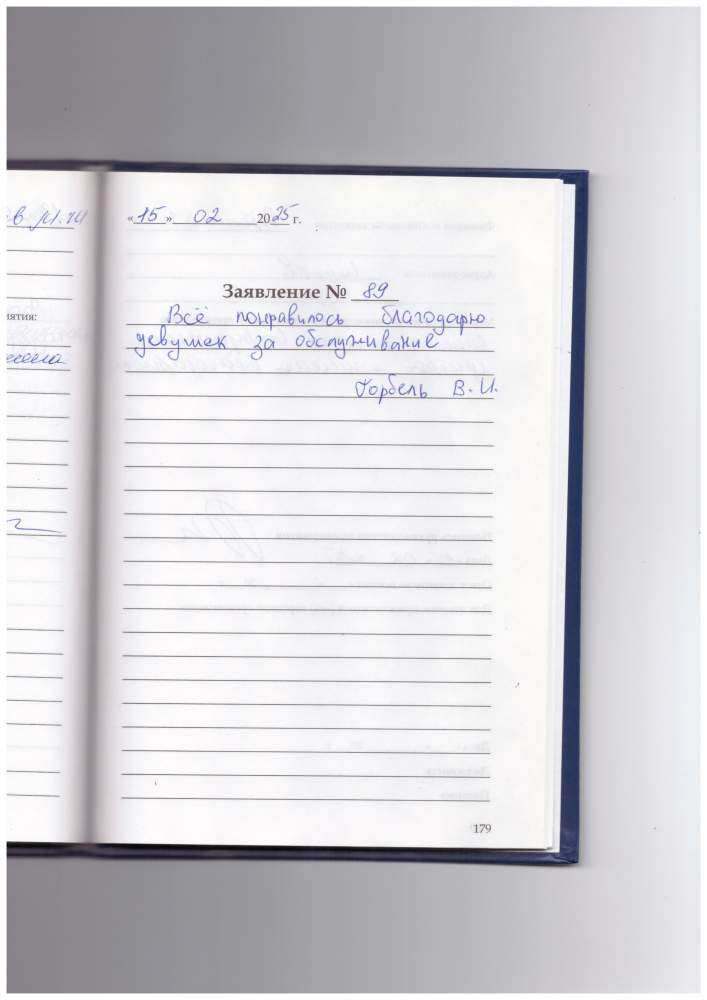 в М.Ч
«15» 02 2025 г.
Заявление № 89
Всё понравилось благодарю
девушек за обслуживание
Горбель В.И.
ятия:
179